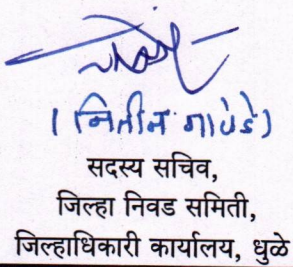 (नितीन गावंडे)
सदस्य सचिव,
जिल्हा निवड समिती,
जिल्हाधिकारी कार्यालय, धुळे